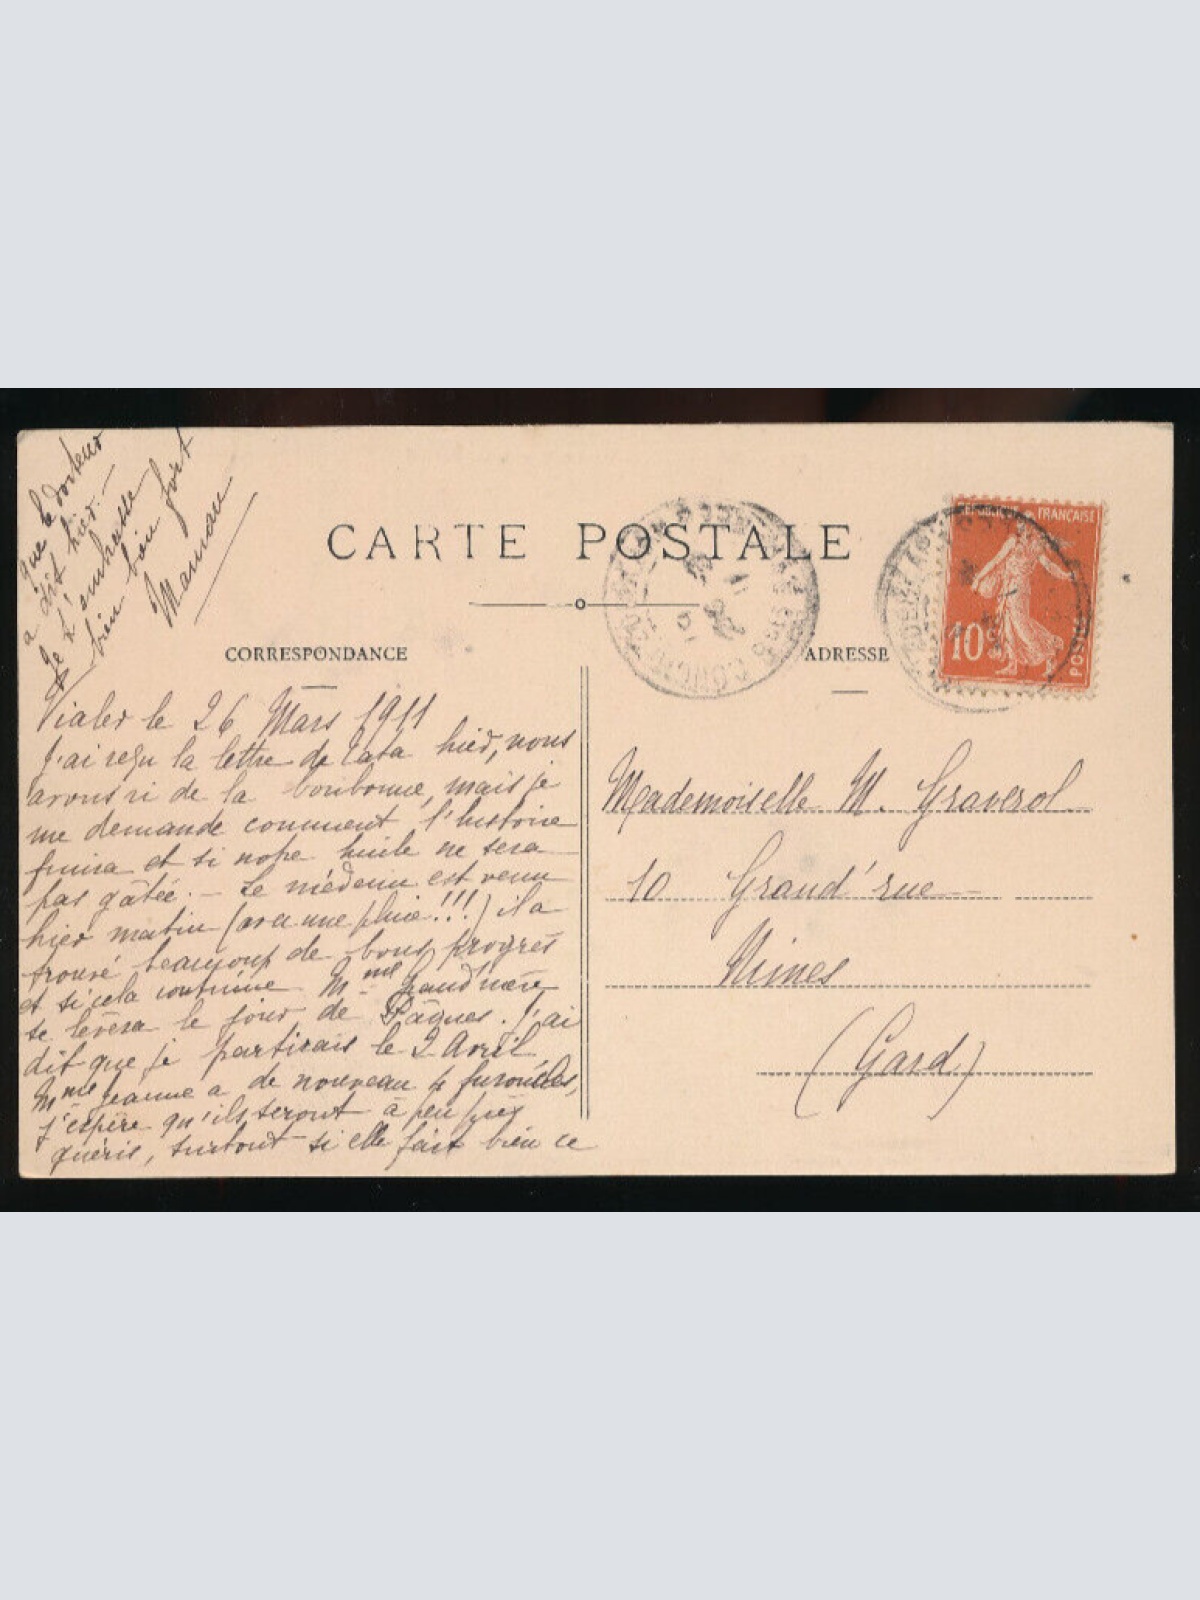 CARTE POSTALE
CORRESPONDANCE
ADRESSE
RÉPUBLIQUE FRANÇAISE
10c
POSTES
Vialer le 26 Mars 1911
J'ai reçu la lettre de Tata hier, nous
avons ri de la bonbonne, mais je
me demande comment l'histoire
finira et si notre huile ne sera
pas gâtée. - Le médecin est venu
hier matin (avec une pluie!!!) il a
trouvé beaucoup de bons progrès
et si cela continue Mme Grand'mère
se lèvera le jour de Pâques. J'ai
dit que je partirais le 2 Avril,
Mme Jeanne a de nouveau 4 furoncles,
j'espère qu'ils seront à peu près
guéris, surtout si elle fait bien ce
que le docteur
a dit hier. -
Je t'embrasse
bien bien fort
Maman
Mademoiselle M. Graverol
10 Grand'rue
Nimes
(Gard.)